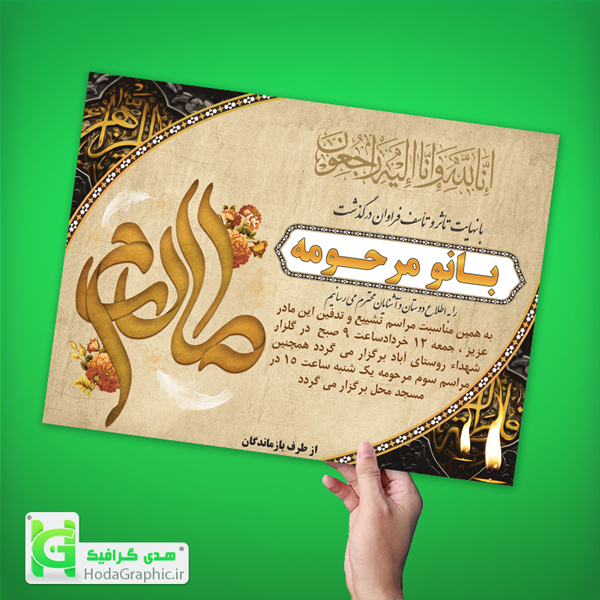 انا لله وانا الیه راجعون
با نهایت تاثر و تاسف فراوان درگذشت
بانو مرحومه
را به اطلاع دوستان و آشنایان محترم می رسانیم
به همین مناسبت مراسم تشییع و تدفین این مادر
عزیز ، جمعه ۱۲ خردادساعت ۹ صبح در گلزار
شهداء روستای آباد برگزار می گردد همچنین
مراسم سوم مرحومه یک شنبه ساعت ۱۵ در
مسجد محل برگزار می گردد
مادرم
از طرف بازماندگان
هدی گرافیک
HodaGraphic.ir